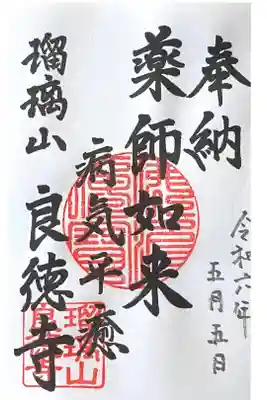 奉納
令和六年
五月五日
薬師如来
病気平癒
瑠璃山
良徳寺
瑠璃山
良徳寺